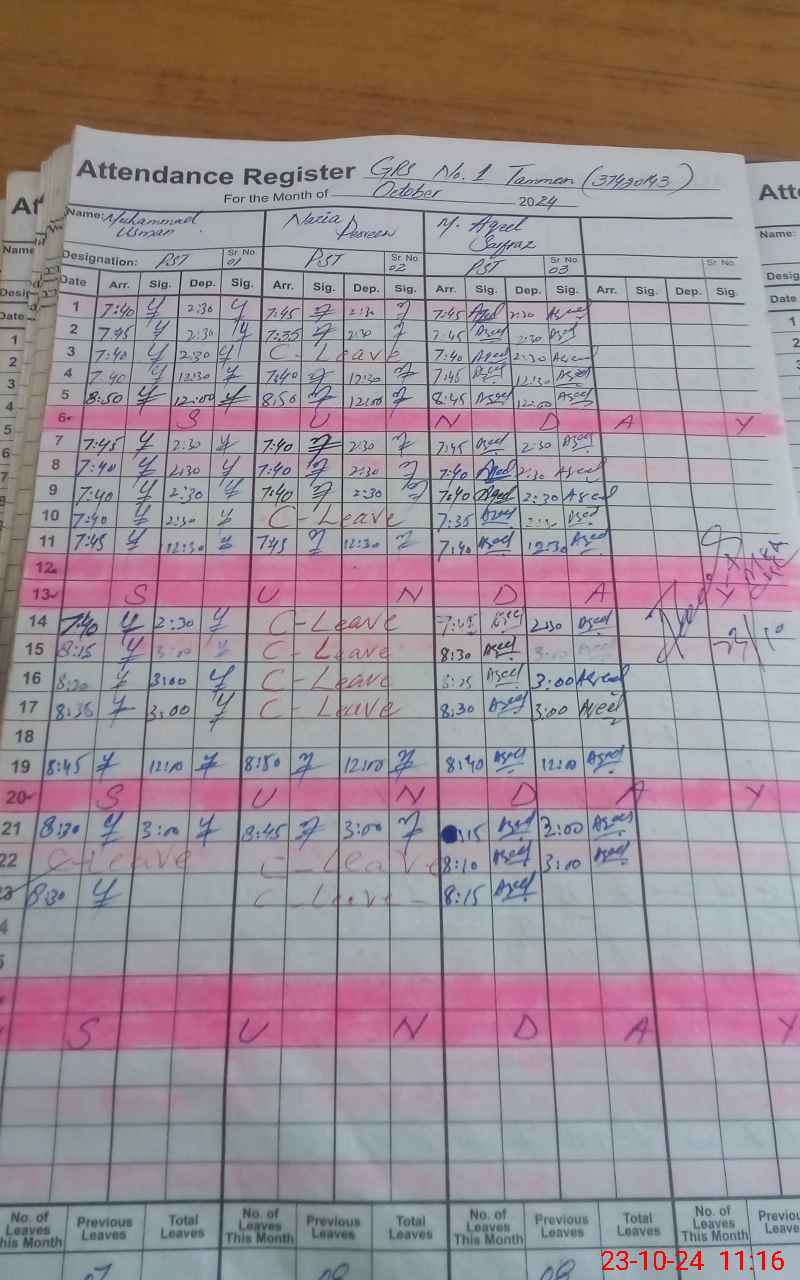 Attendance Register GPS No. 1 Tamman (37420143)
For the Month of October 2024
Name: Muhammad Usman Nazia Parveen M. Aqeel Sarfraz
Designation: PST Sr. No. 01 PST Sr. No. 02 PST Sr. No. 03 Sr. No.
Date Arr. Sig. Dep. Sig. Arr. Sig. Dep. Sig. Arr. Sig. Dep. Sig. Arr. Sig. Dep. Sig.
1 7:40 2:30 7:45 2:30 7:45 Aqeel 2:30 Aqeel
2 7:45 2:30 7:35 2:30 7:45 Aqeel 2:30 Aqeel
3 7:40 2:30 C-Leave 7:40 Aqeel 2:30 Aqeel
4 7:40 12:30 7:40 12:30 7:45 Aqeel 12:30 Aqeel
5 8:50 12:00 8:50 12:00 8:45 Aqeel 12:00 Aqeel
6 S U N D A Y
7 7:45 2:30 7:40 2:30 7:45 Aqeel 2:30 Aqeel
8 7:40 2:30 7:40 2:30 7:40 Aqeel 2:30 Aqeel
9 7:40 2:30 7:40 2:30 7:40 Aqeel 2:30 Aqeel
10 7:40 2:30 C-Leave 7:35 Aqeel 2:30 Aqeel
11 7:45 12:30 7:45 12:30 7:40 Aqeel 12:30 Aqeel
12
13 S U N D A Y
14 7:40 2:30 C-Leave 7:45 Aqeel 2:30 Aqeel
15 8:15 3:00 C-Leave 8:30 Aqeel 3:00
16 8:20 3:00 C-Leave 8:25 Aqeel 3:00 Aqeel
17 8:35 3:00 C-Leave 8:30 Aqeel 3:00 Aqeel
18
19 8:45 12:00 8:50 12:00 8:40 Aqeel 12:00 Aqeel
20 S U N D A Y
21 8:20 3:00 8:45 3:00 :15 Aqeel 3:00 Aqeel
22 C-Leave C-Leave 8:10 Aqeel 3:00 Aqeel
23 8:30 C-Leave 8:15 Aqeel
4
5
S U N D A Y
No. of Leaves This Month Previous Leaves Total Leaves No. of Leaves This Month Previous Leaves Total Leaves No. of Leaves This Month Previous Leaves Total Leaves No. of Leaves This Month Previous Leaves
07 08 08
23-10-24 11:16